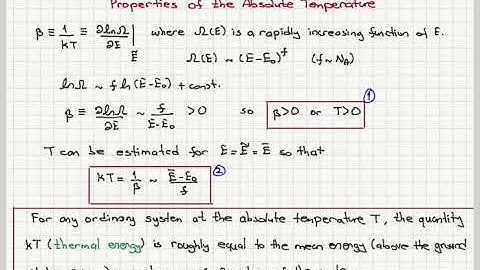 Properties of the Absolute Temperature
β ≡ 1/kT ≡ ∂lnΩ/∂E |Ẽ where Ω(E) is a rapidly increasing function of E.
Ω(E) ~ (E-E₀)^f (f~N_A)
lnΩ ~ f ln(E-E₀) + const.
β ≡ ∂lnΩ/∂E ~ f/(E-E₀) >0 so β>0 or T>0 ①
T can be estimated for E=Ẽ=Ē so that
kT = 1/β ~ (Ē-E₀)/f ②
For any ordinary system at the absolute temperature T, the quantity
kT (thermal energy) is roughly equal to the mean energy (above the ground